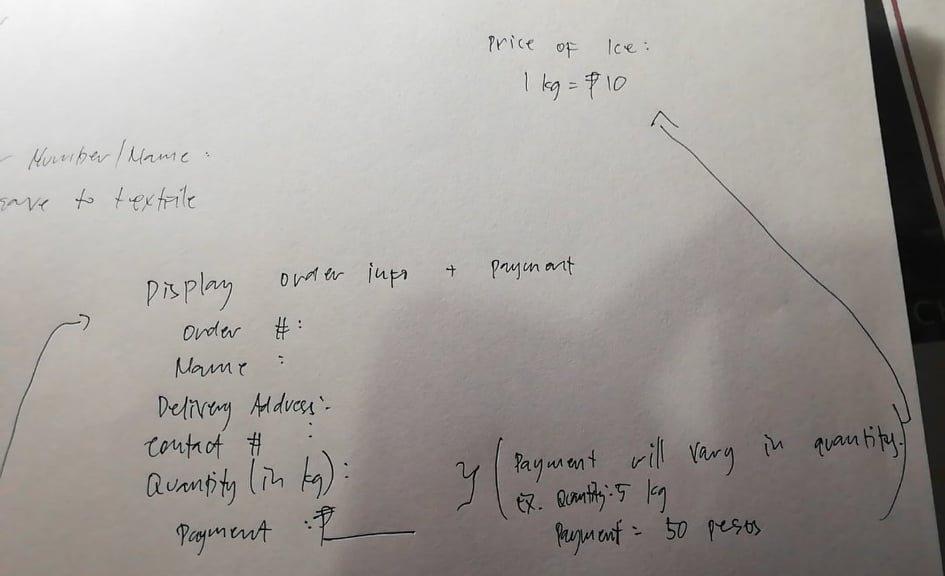 Price of Ice:
1 kg = ₱10
Number/Name:
save to textfile
Display order info + payment
Order #:
Name :
Delivery Address:
Contact # :
Quantity (in kg):
Payment : ₱
(Payment will vary in quantity.
Ex. Quantity: 5 kg
Payment = 50 pesos)